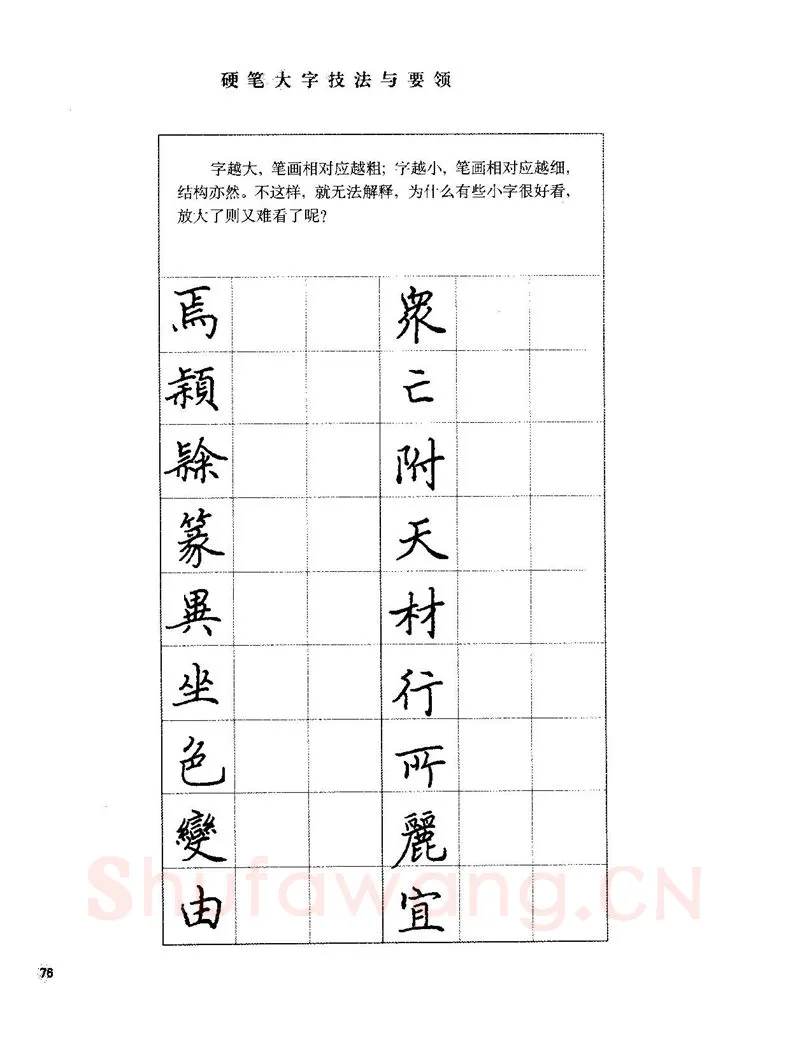 硬笔大字技法与要领
字越大，笔画相对应越粗；字越小，笔画相对应越细，
结构亦然。不这样，就无法解释，为什么有些小字很好看，
放大了则又难看了呢？
焉 衆
亡
附
篆 天
異 材
坐 行
色 所
變 麗
由 宜
Shufawang.CN
76